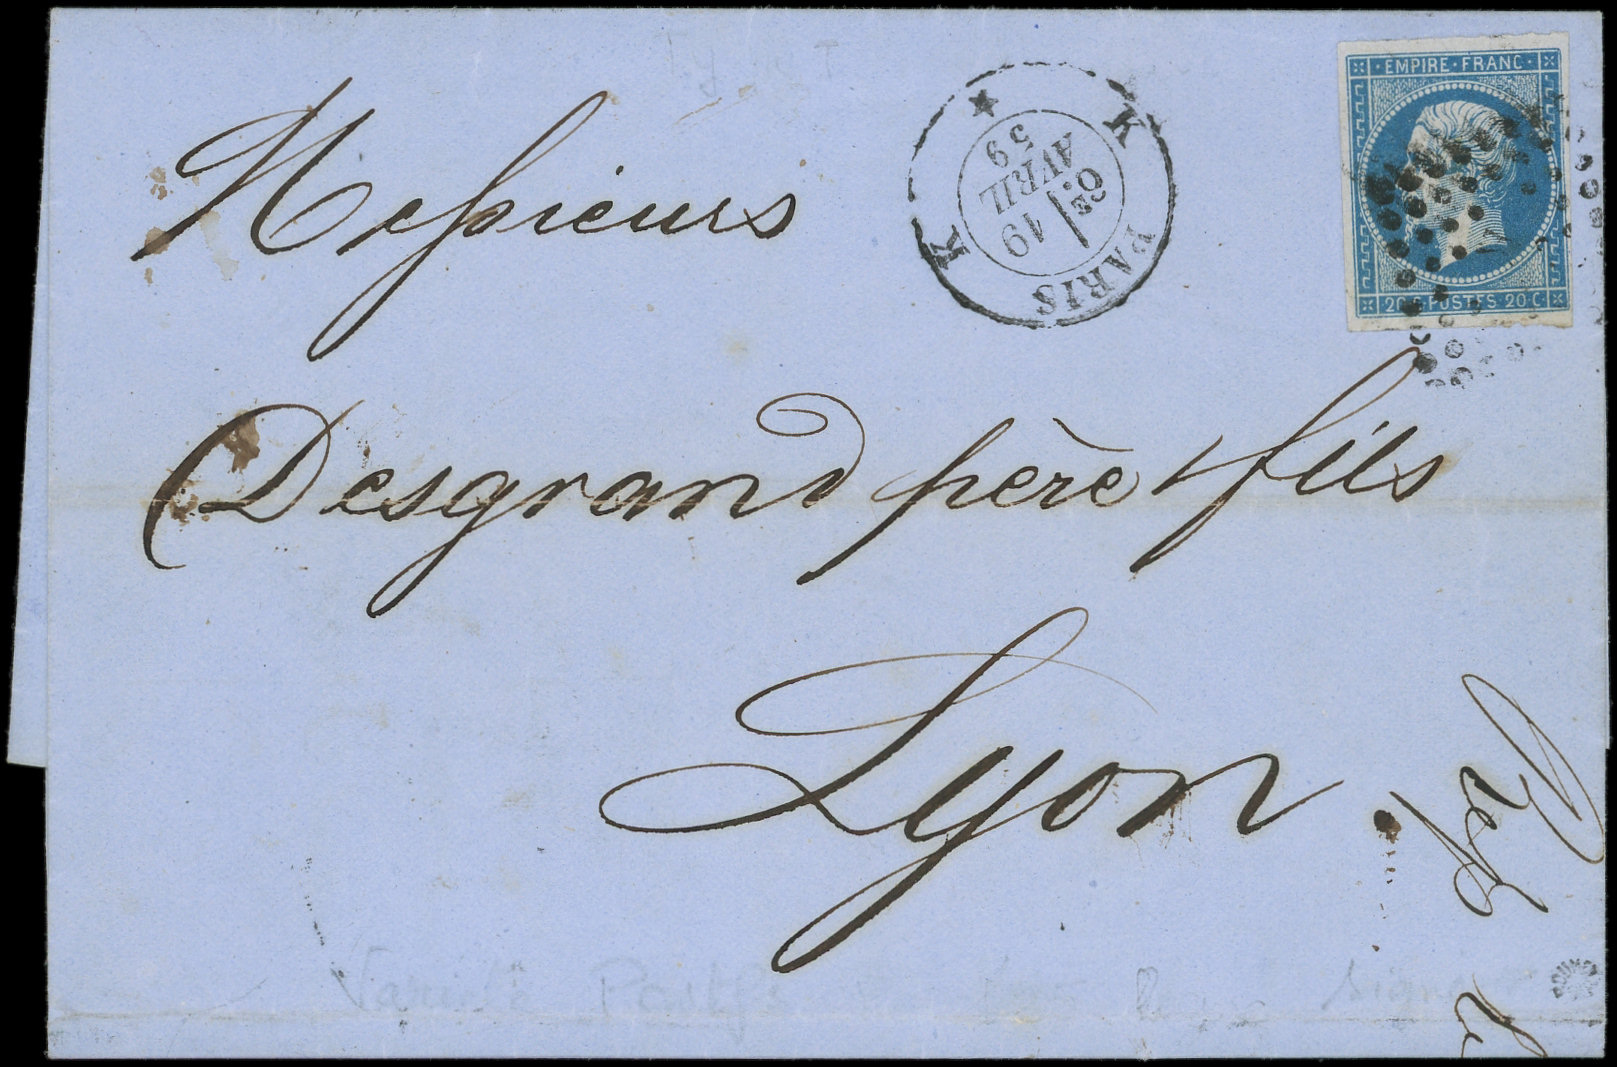 Messieurs
Desgrand père & fils
Lyon.
K PARIS K
6E
19
AVRIL
59
EMPIRE · FRANC ·
20 C POSTES 20 C
Variété Postfs
signé